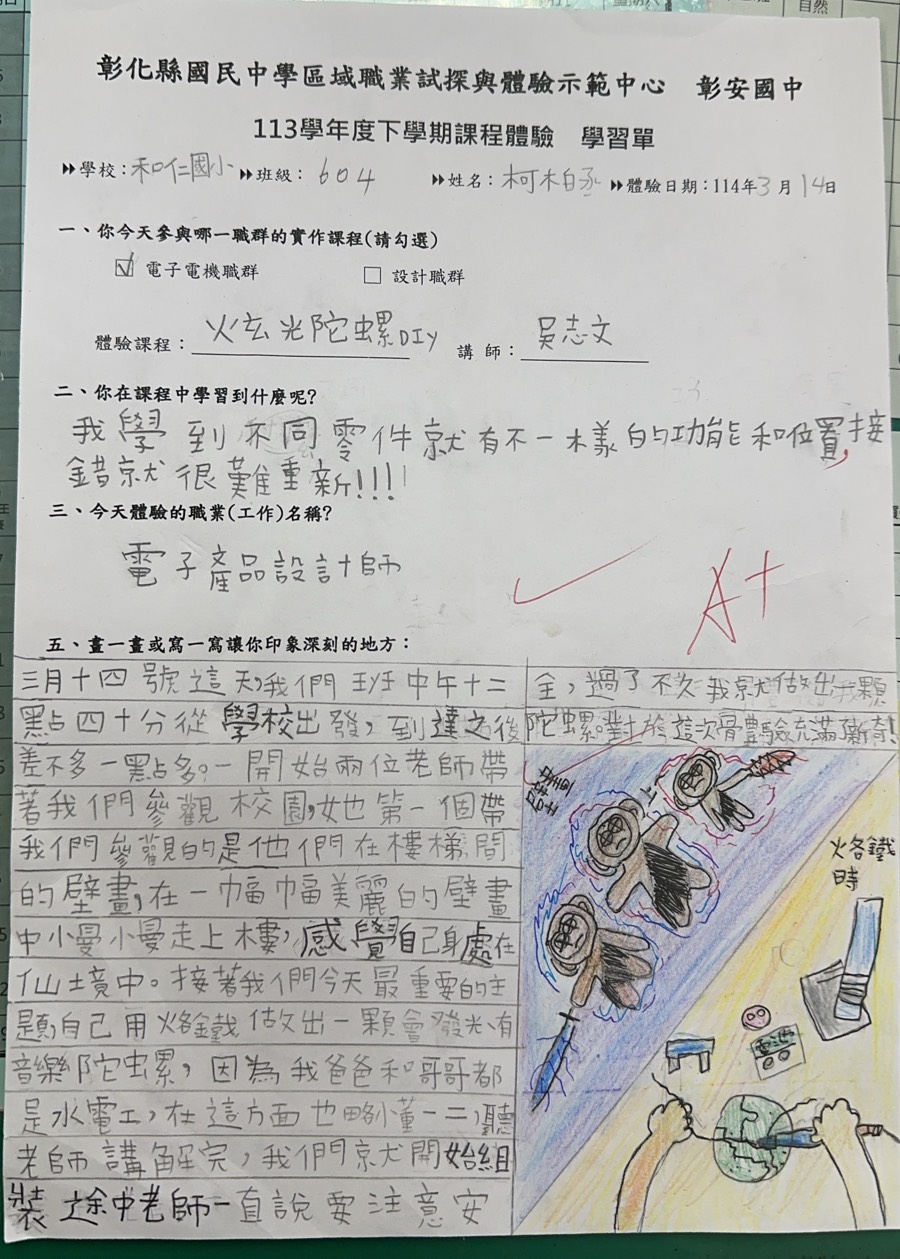 自然
彰化縣國民中學區域職業試探與體驗示範中心 彰安國中
113學年度下學期課程體驗 學習單
學校：和仁國小 班級：604 姓名：柯柏丞 體驗日期：114年3月14日
一、你今天參與哪一職群的實作課程(請勾選)
☑ 電子電機職群 □ 設計職群
體驗課程：火玄光陀螺DIY 講 師：吳志文
二、你在課程中學習到什麼呢?
我學到不同零件就有不一樣的功能和位置，接
錯就很難重新!!!!
三、今天體驗的職業(工作)名稱?
電子產品設計師
A+
五、畫一畫或寫一寫讓你印象深刻的地方：
三月十四號這天，我們班中午十二
點四十分從學校出發，到達之後
差不多一點多。一開始兩位老師帶
著我們參觀校園，她第一個帶
我們參觀的是他們在樓梯間
的壁畫，在一幅幅美麗的壁畫
中小曼小曼走上樓，感覺自己身處在
仙境中。接著我們今天最重要的主
題，自己用烙鐵做出一顆會發光、有
音樂陀螺，因為我爸爸和哥哥都
是水電工，在這方面也略懂一二，聽
老師講解完，我們就開始組
裝途中老師一直說要注意安
全，過了不久我就做出我顆
陀螺。對於這次體驗充滿新奇!
壁畫上
烙鐵時
電池